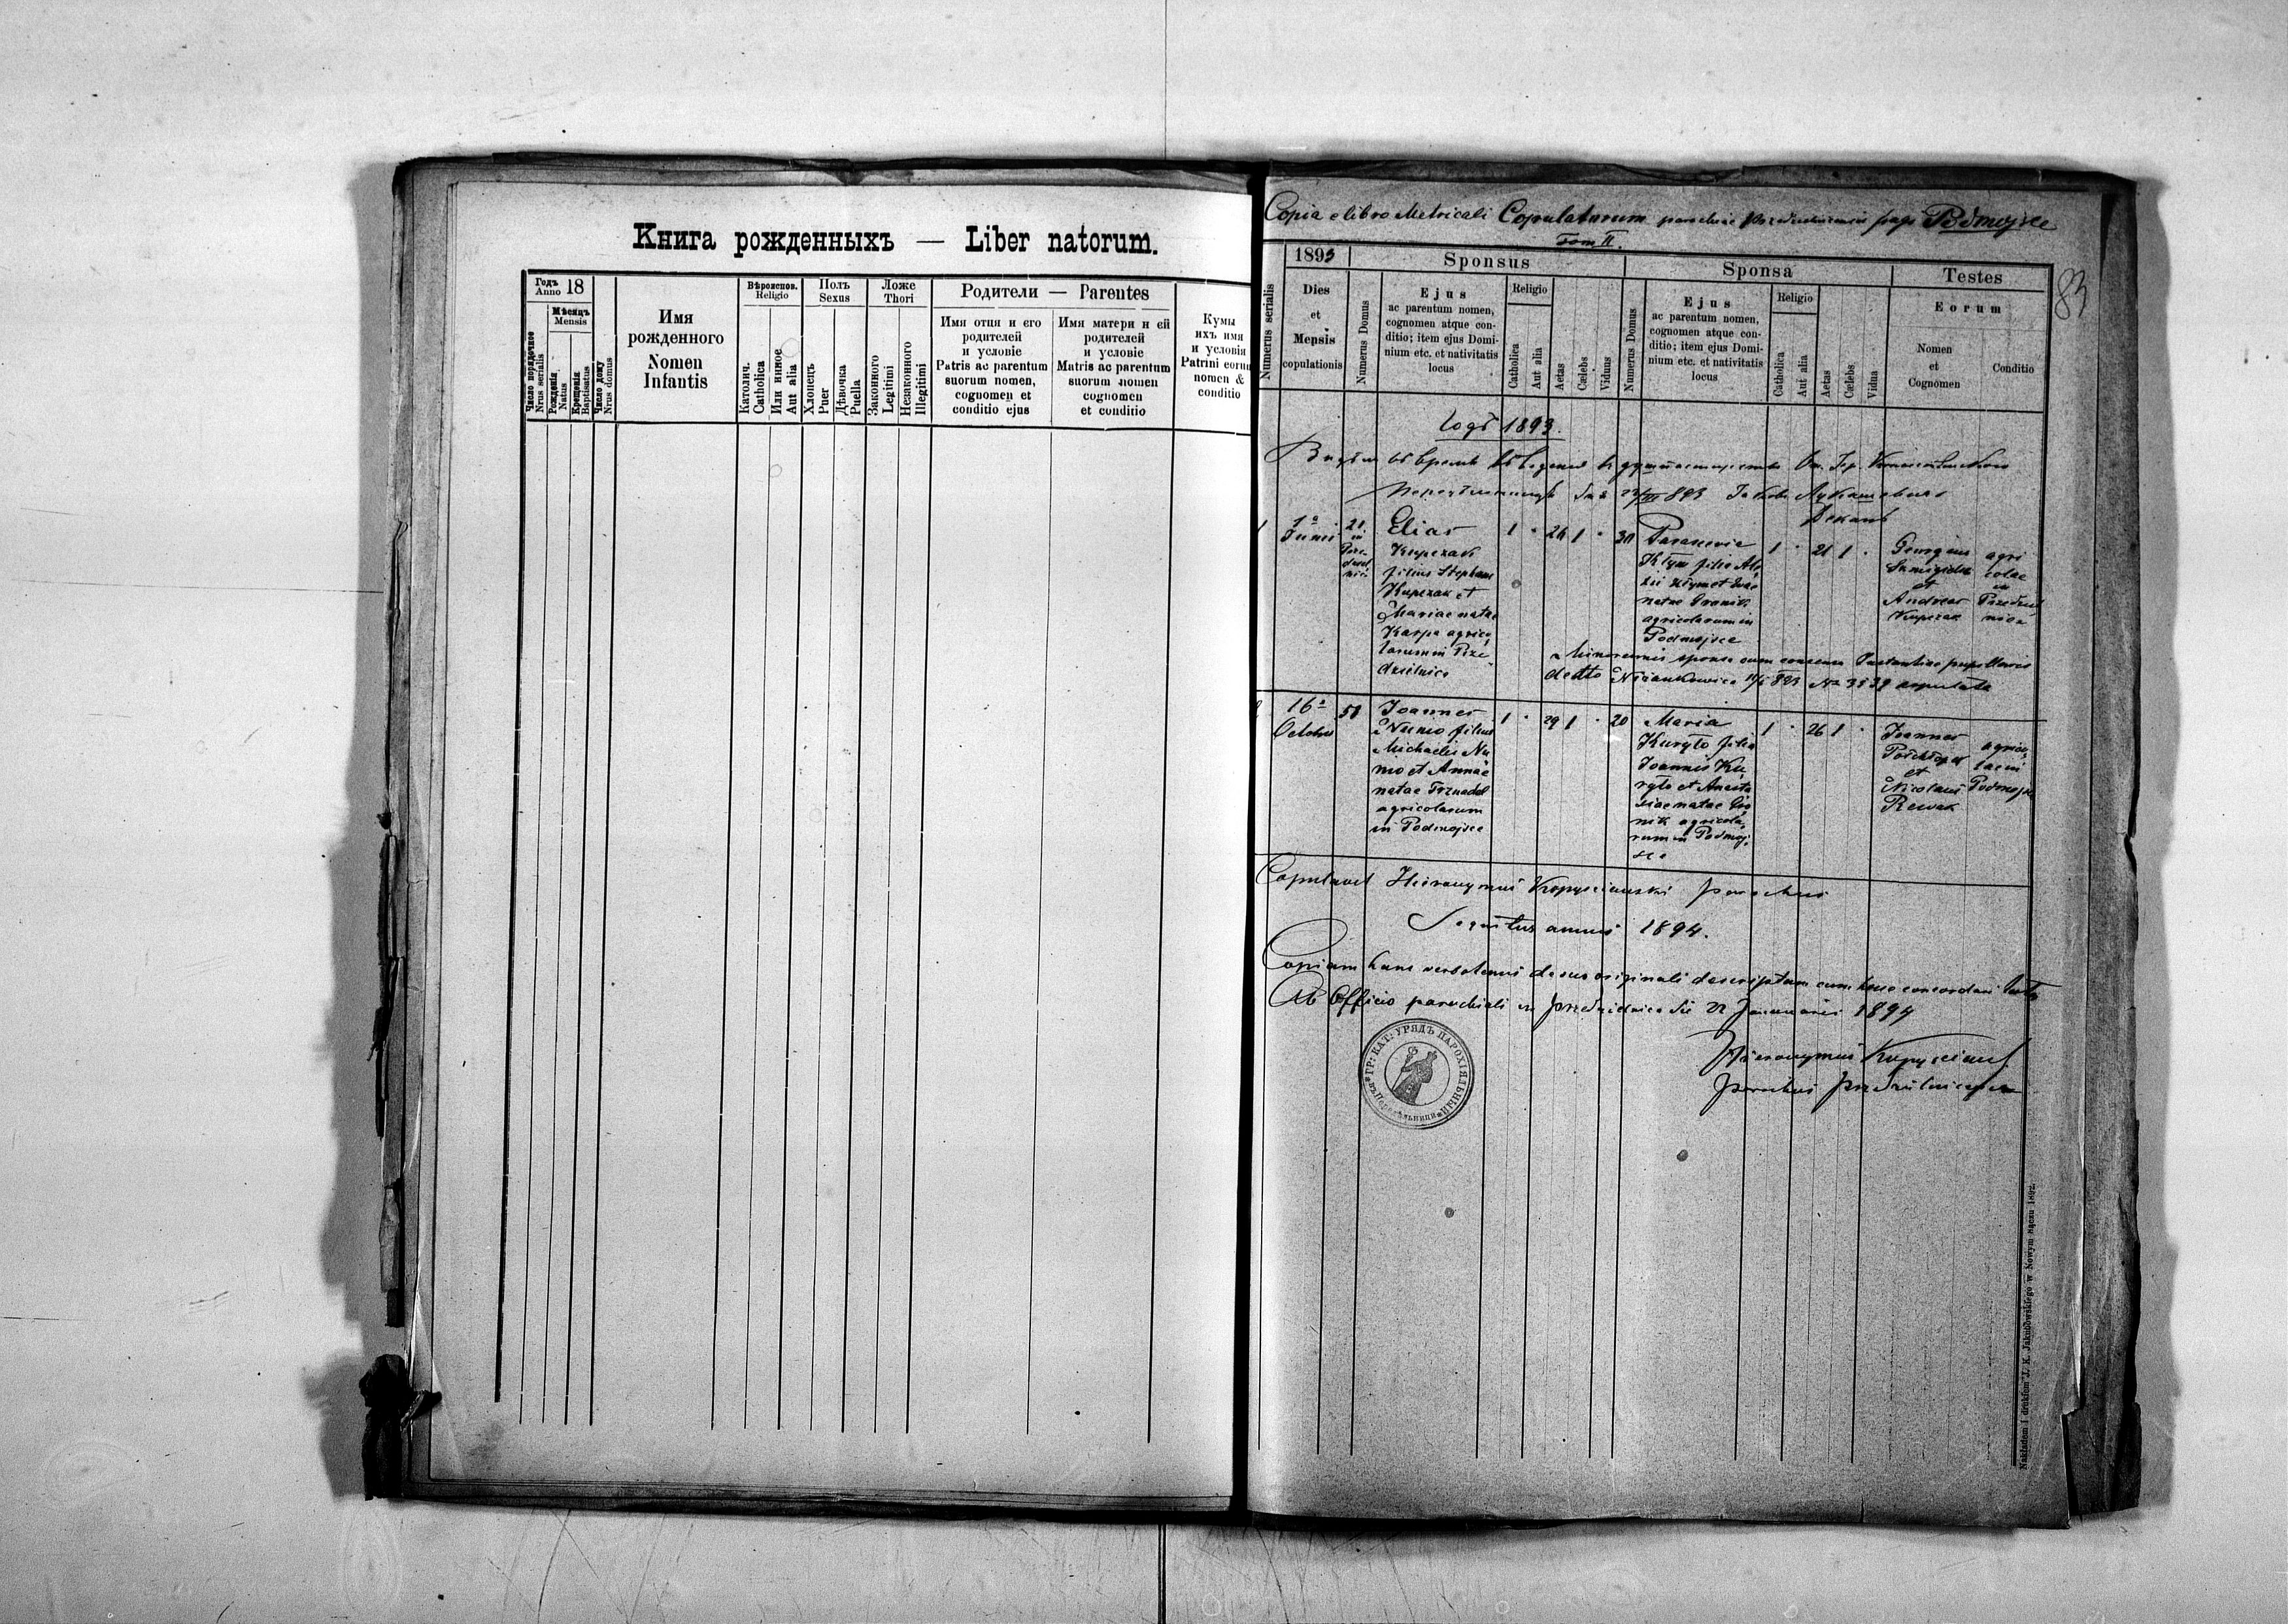 Книга рожденныхъ — Liber natorum.
Годъ
Anno 18
Мѣсяцъ
Mensis
Число порядочное
Nrus serialis
Рожденія
Natus
Крещенія
Baptisatus
Число дому
Nrus domus
Имя
рожденного
Nomen
Infantis
Вѣроиспов.
Religio
Католич.
Catholica
Или инное
Aut alia
Полъ
Sexus
Хлопецъ
Puer
Дѣвочка
Puella
Ложе
Thori
Законного
Legitimi
Незаконного
Illegitimi
Родители — Parentes
Имя отця и єго
родителей
и условіе
Patris ac parentum
suorum nomen,
cognomen et
conditio ejus
Имя матери и єй
родителей
и условіе
Matris ac parentum
suorum nomen
cognomen
et conditio
Кумы
ихъ имя
и условія
Patrini eorum
nomen &
conditio
Copia e libro Metricali Copulatorum parochiae Podmojsce
Tom II.
83
Numerus serialis
1893
Dies
et
Mensis
copulationis
Sponsus
Numerus Domus
Ejus
ac parentum nomen,
cognomen atque con-
ditio; item ejus Domi-
nium etc. et nativitatis
locus
Religio
Catholica
Aut alia
Aetas
Cælebs
Viduus
Sponsa
Numerus Domus
Ejus
ac parentum nomen,
cognomen atque con-
ditio; item ejus Domi-
nium etc. et nativitatis
locus
Religio
Catholica
Aut alia
Aetas
Cælebs
Vidua
Testes
Eorum
Nomen
et
Cognomen
Conditio
годъ 1893.
Деканъ
1
1a
Junii
21
in
Prze-
dziel-
nica
Elias
Kupczak
filius Stephani
Kupczak et
Mariae natae
Karpa agrico-
larum in Prze-
dzielnica
1
24
1
30
Parascevia
Kłym filia
Kłym et
natae Hronik
agricolarum in
Podmojsce
1
21
1
Georgius
et
Andreas
Kupczak
agri
colae
in
Przedziel
nica
sponsa cum consensu Instantiae pupillaris
de dto Niżankowice 893 No 3539 copulata
16a
Octobris
51
Joannes
Numo filius
Michaelis Nu
mo et Annae
natae Trznadel
agricolarum
in Podmojsce
1
29
1
20
Maria
Kuryło filia
Joannis Ku
ryło et Anasta
siae natae Hro
nik agricola-
rum in Podmoj-
sce
1
26
1
Joannes
et
Nicolaus
Rewak
agrico-
lae in
Podmojsce
Copulavit Hieronymus Kopyściański parochus
Sequitur annus 1894.
Copiam hanc verbotenus de suo originali descriptam cum hoc concordare testor
Ab Officio parochiali in Przedzielnica die 22 Januarii 1894
Hieronymus Kopyściański
parochus
ГР: КАТ: УРЯДЪ ПАРОХІЯЛЬНЫЙ
Nakładem i drukiem J. K. Jakubowskiego w Nowym Sączu 1892.